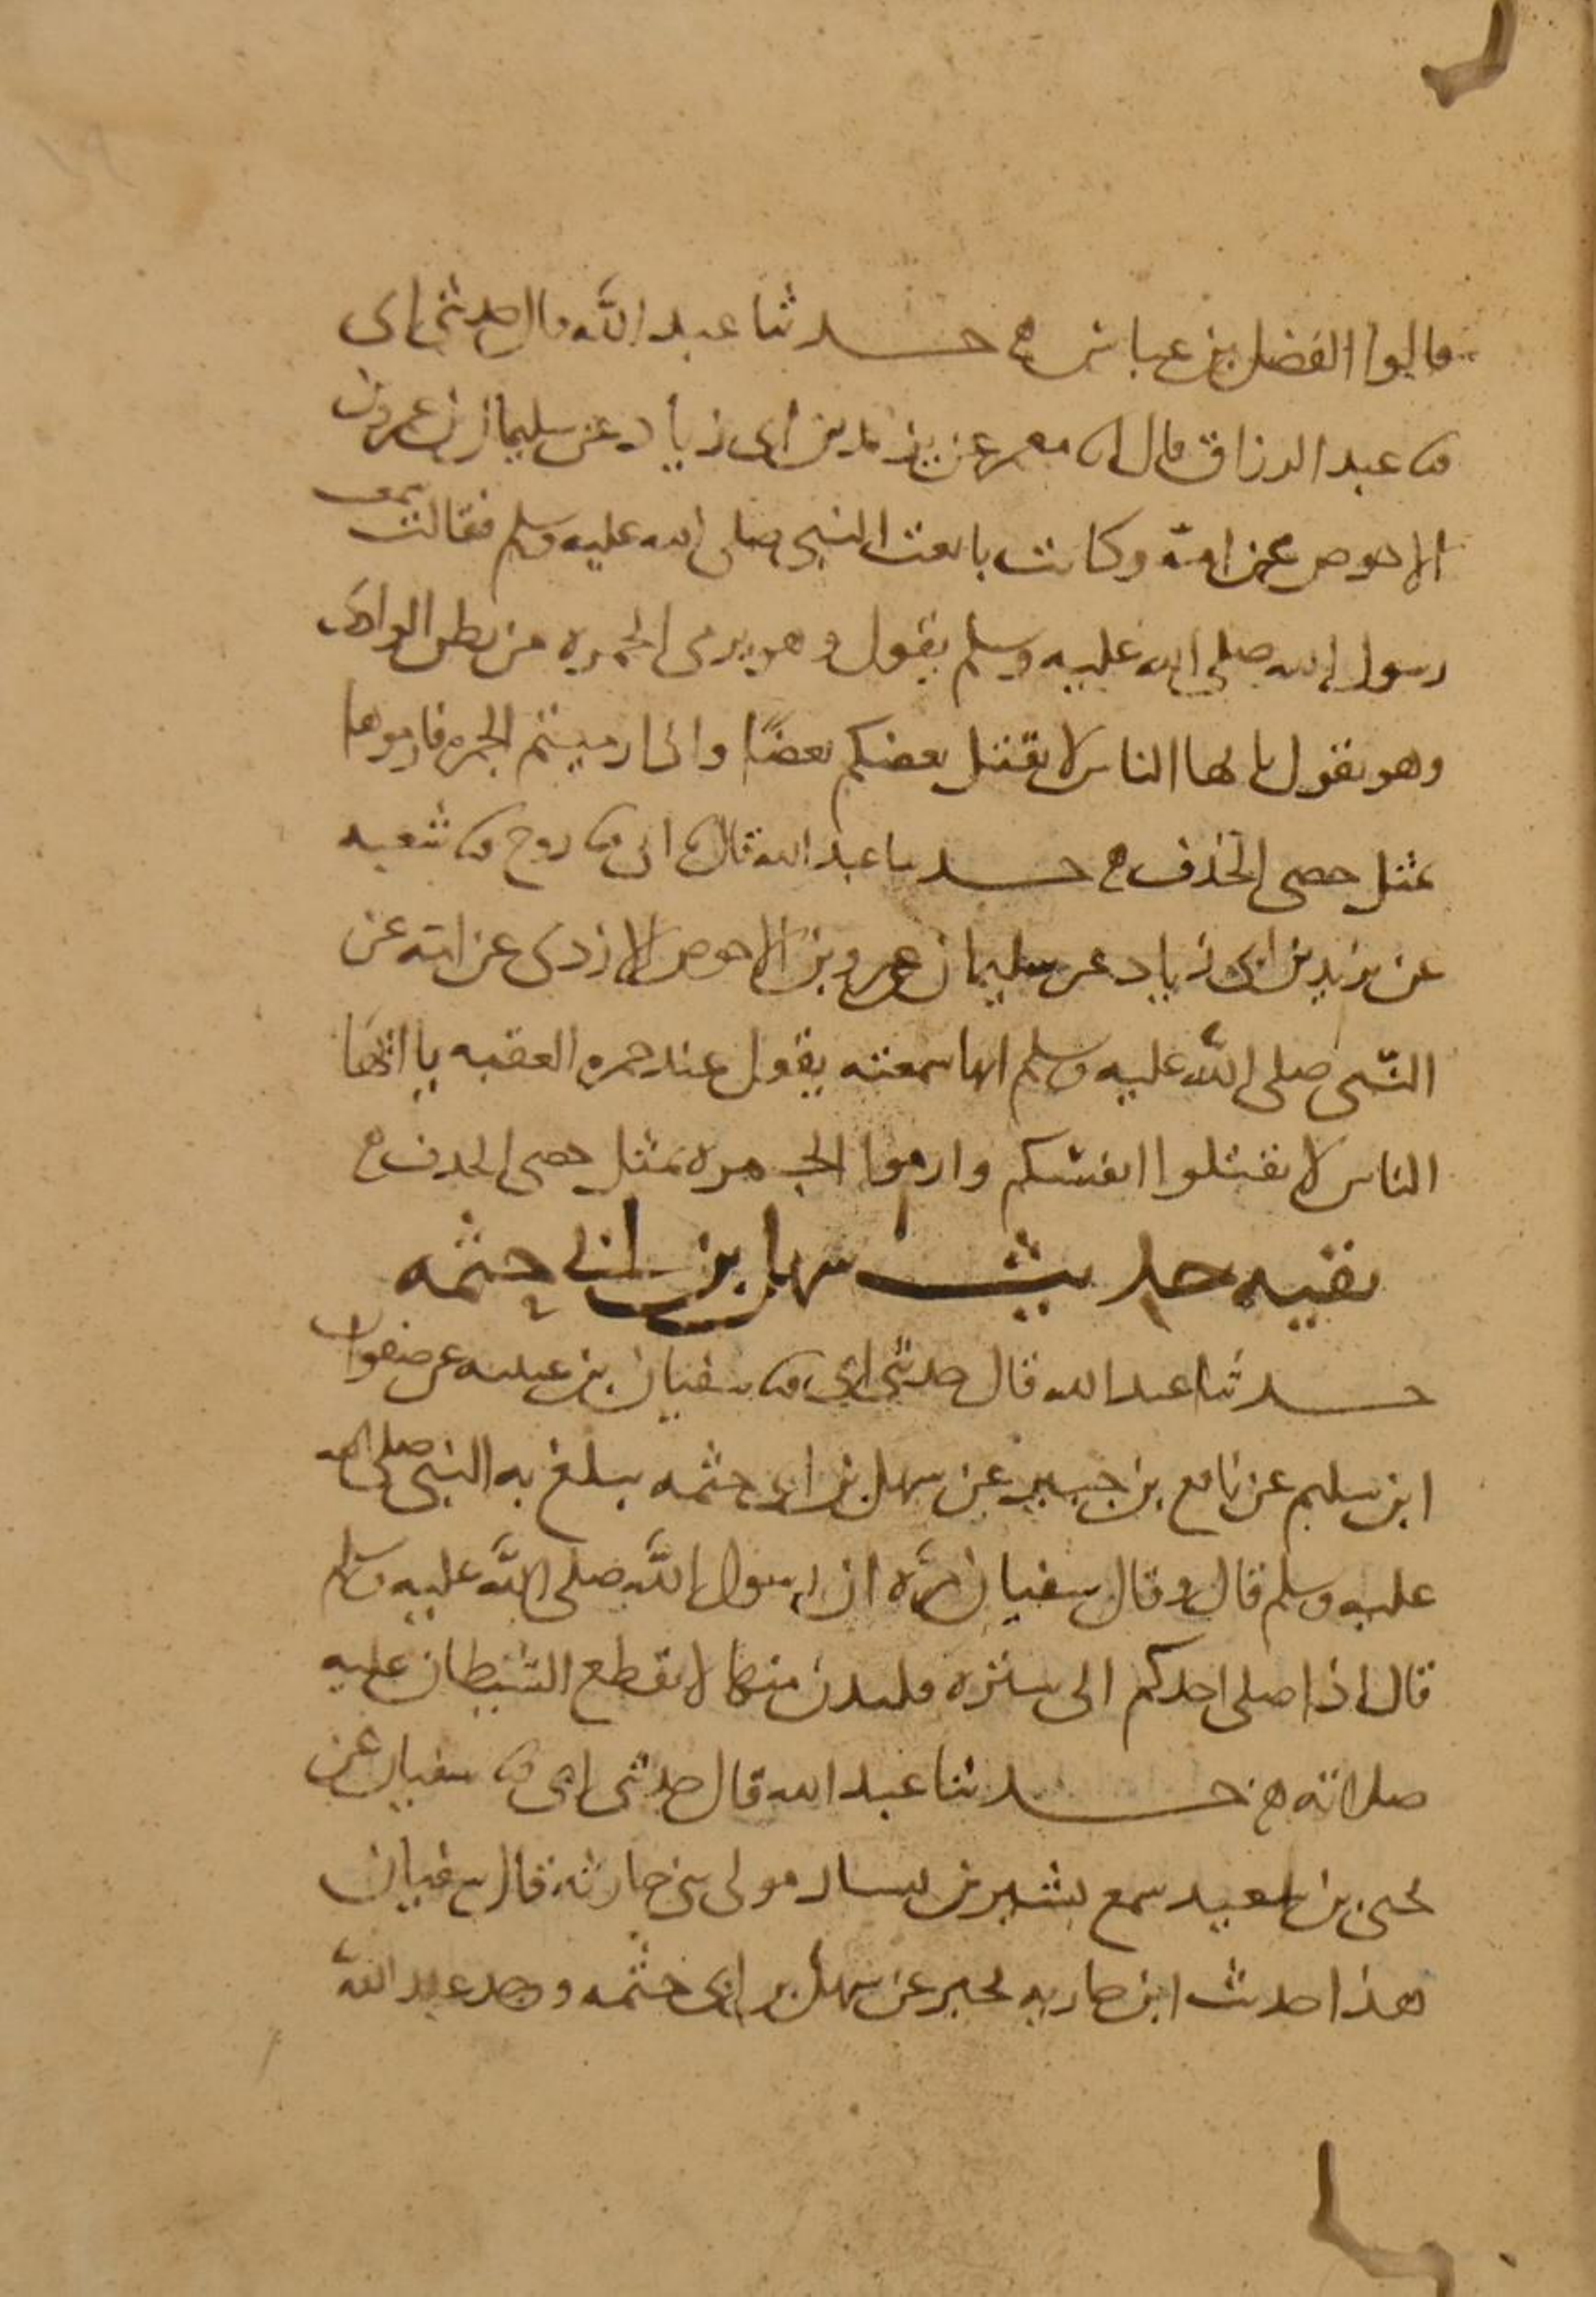 قالوا الفضل بن عباس ه حدثنا عبد الله قال حدثني ابي
ثنا عبد الرزاق قال انا معمر عن يزيد بن ابي زياد عن سليمان بن عمرو بن
الاحوص عن امه وكانت بايعت النبي صلى الله عليه وسلم فقالت سمعت
رسول الله صلى الله عليه وسلم يقول وهو يرمي الجمره من بطن الوادي
وهو يقول يا ايها الناس لا يقتل بعضكم بعضا واذا رميتم الجمره فارموها
بمثل حصى الخذف ه حدثنا عبد الله قال ثنا ابي ثنا روح ثنا شعبه
عن يزيد بن ابي زياد عن سليمان عمرو بن الاحوص الازدي عن امه عن
النبي صلى الله عليه وسلم انها سمعته يقول عند جمره العقبه يا ايها
الناس لا تقتلوا انفسكم وارموا الجمره بمثل حصى الخذف ه
بقيه حديث سهل بن ابي حثمه
حدثنا عبد الله قال حدثني ابي ثنا سفيان بن عيينه عن صفوان
ابن سليم عن نافع بن جبير عن سهل بن ابي حثمه يبلغ به النبي صلى الله
عليه وسلم قال وقال سفيان مره ان رسول الله صلى الله عليه وسلم
قال اذا صلى احدكم الى ستره فليدن منها لا يقطع الشيطان عليه
صلاته ه حدثنا عبد الله قال حدثني ابي ثنا سفيان عن
يحيى بن سعيد سمع بشير بن يسار مولى بني حارثه قال سفيان
هذا حديث ابن حارثه يخبر عن سهل بن ابي حثمه وجد عبد الله